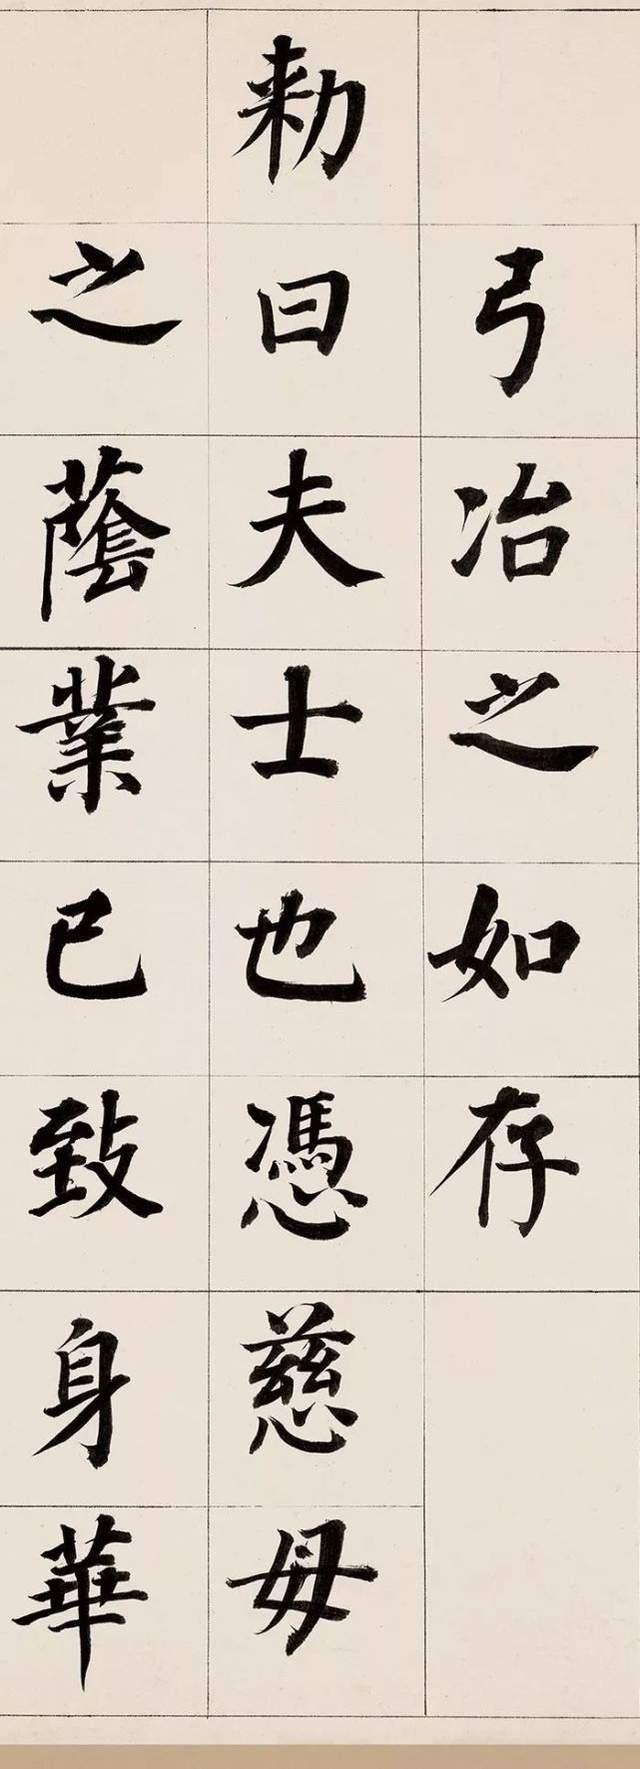 弓冶之如存
勑曰夫士也憑慈母
之蔭業已致身華